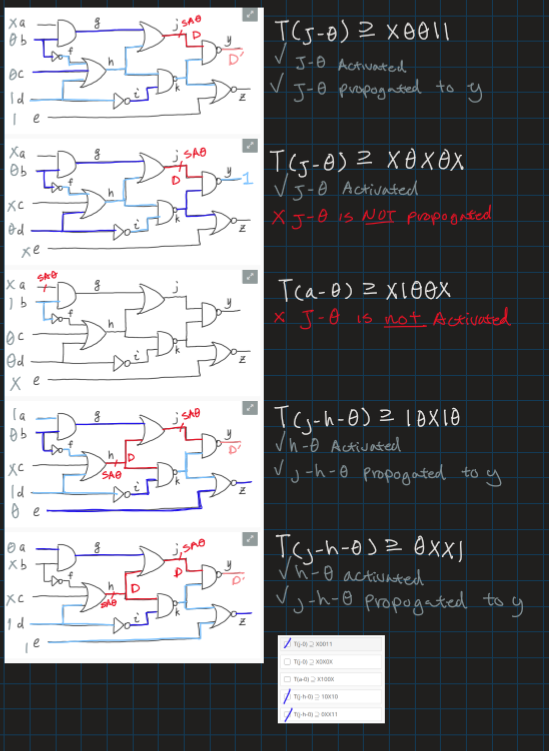 xa
θb
θc
1d
1 e
g
f
h
i
j
SAθ
D
k
y
D'
z
T(j-θ) ⊇ xθθ11
✓ J-θ Activated
✓ J-θ propogated to y
xa
θb
xc
θd
xe
g
f
h
i
j
SAθ
D
k
y
1
z
T(j-θ) ⊇ xθxθx
✓ J-θ Activated
x J-θ is NOT propogated
SAθ
xa
1 b
θc
θd
X e
g
f
h
i
j
k
y
z
T(a-θ) ⊇ x1θθx
x J-θ is not Activated
1a
θb
xc
1d
θ e
g
f
h
SAθ
D
i
j
SAθ
k
y
D'
z
T(j-h-θ) ⊇ 1θx1θ
✓ h-θ Activated
✓ j-h-θ propogated to y
θa
xb
xc
1d
1e
g
f
h
SAθ
D
i
j
SAθ
D
k
y
D'
z
T(j-h-θ) ⊇ θxx1
✓ h-θ activated
✓ j-h-θ propogated to y
T(j-0) ⊇ X0011
T(j-0) ⊇ X0X0X
T(a-0) ⊇ X100X
T(j-h-0) ⊇ 10X10
T(j-h-0) ⊇ 0XX11